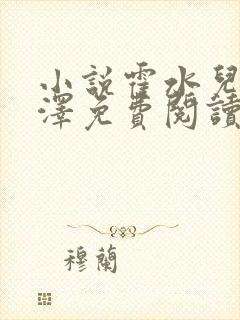 小說霍水兒
澤免費閱讀
穆蘭